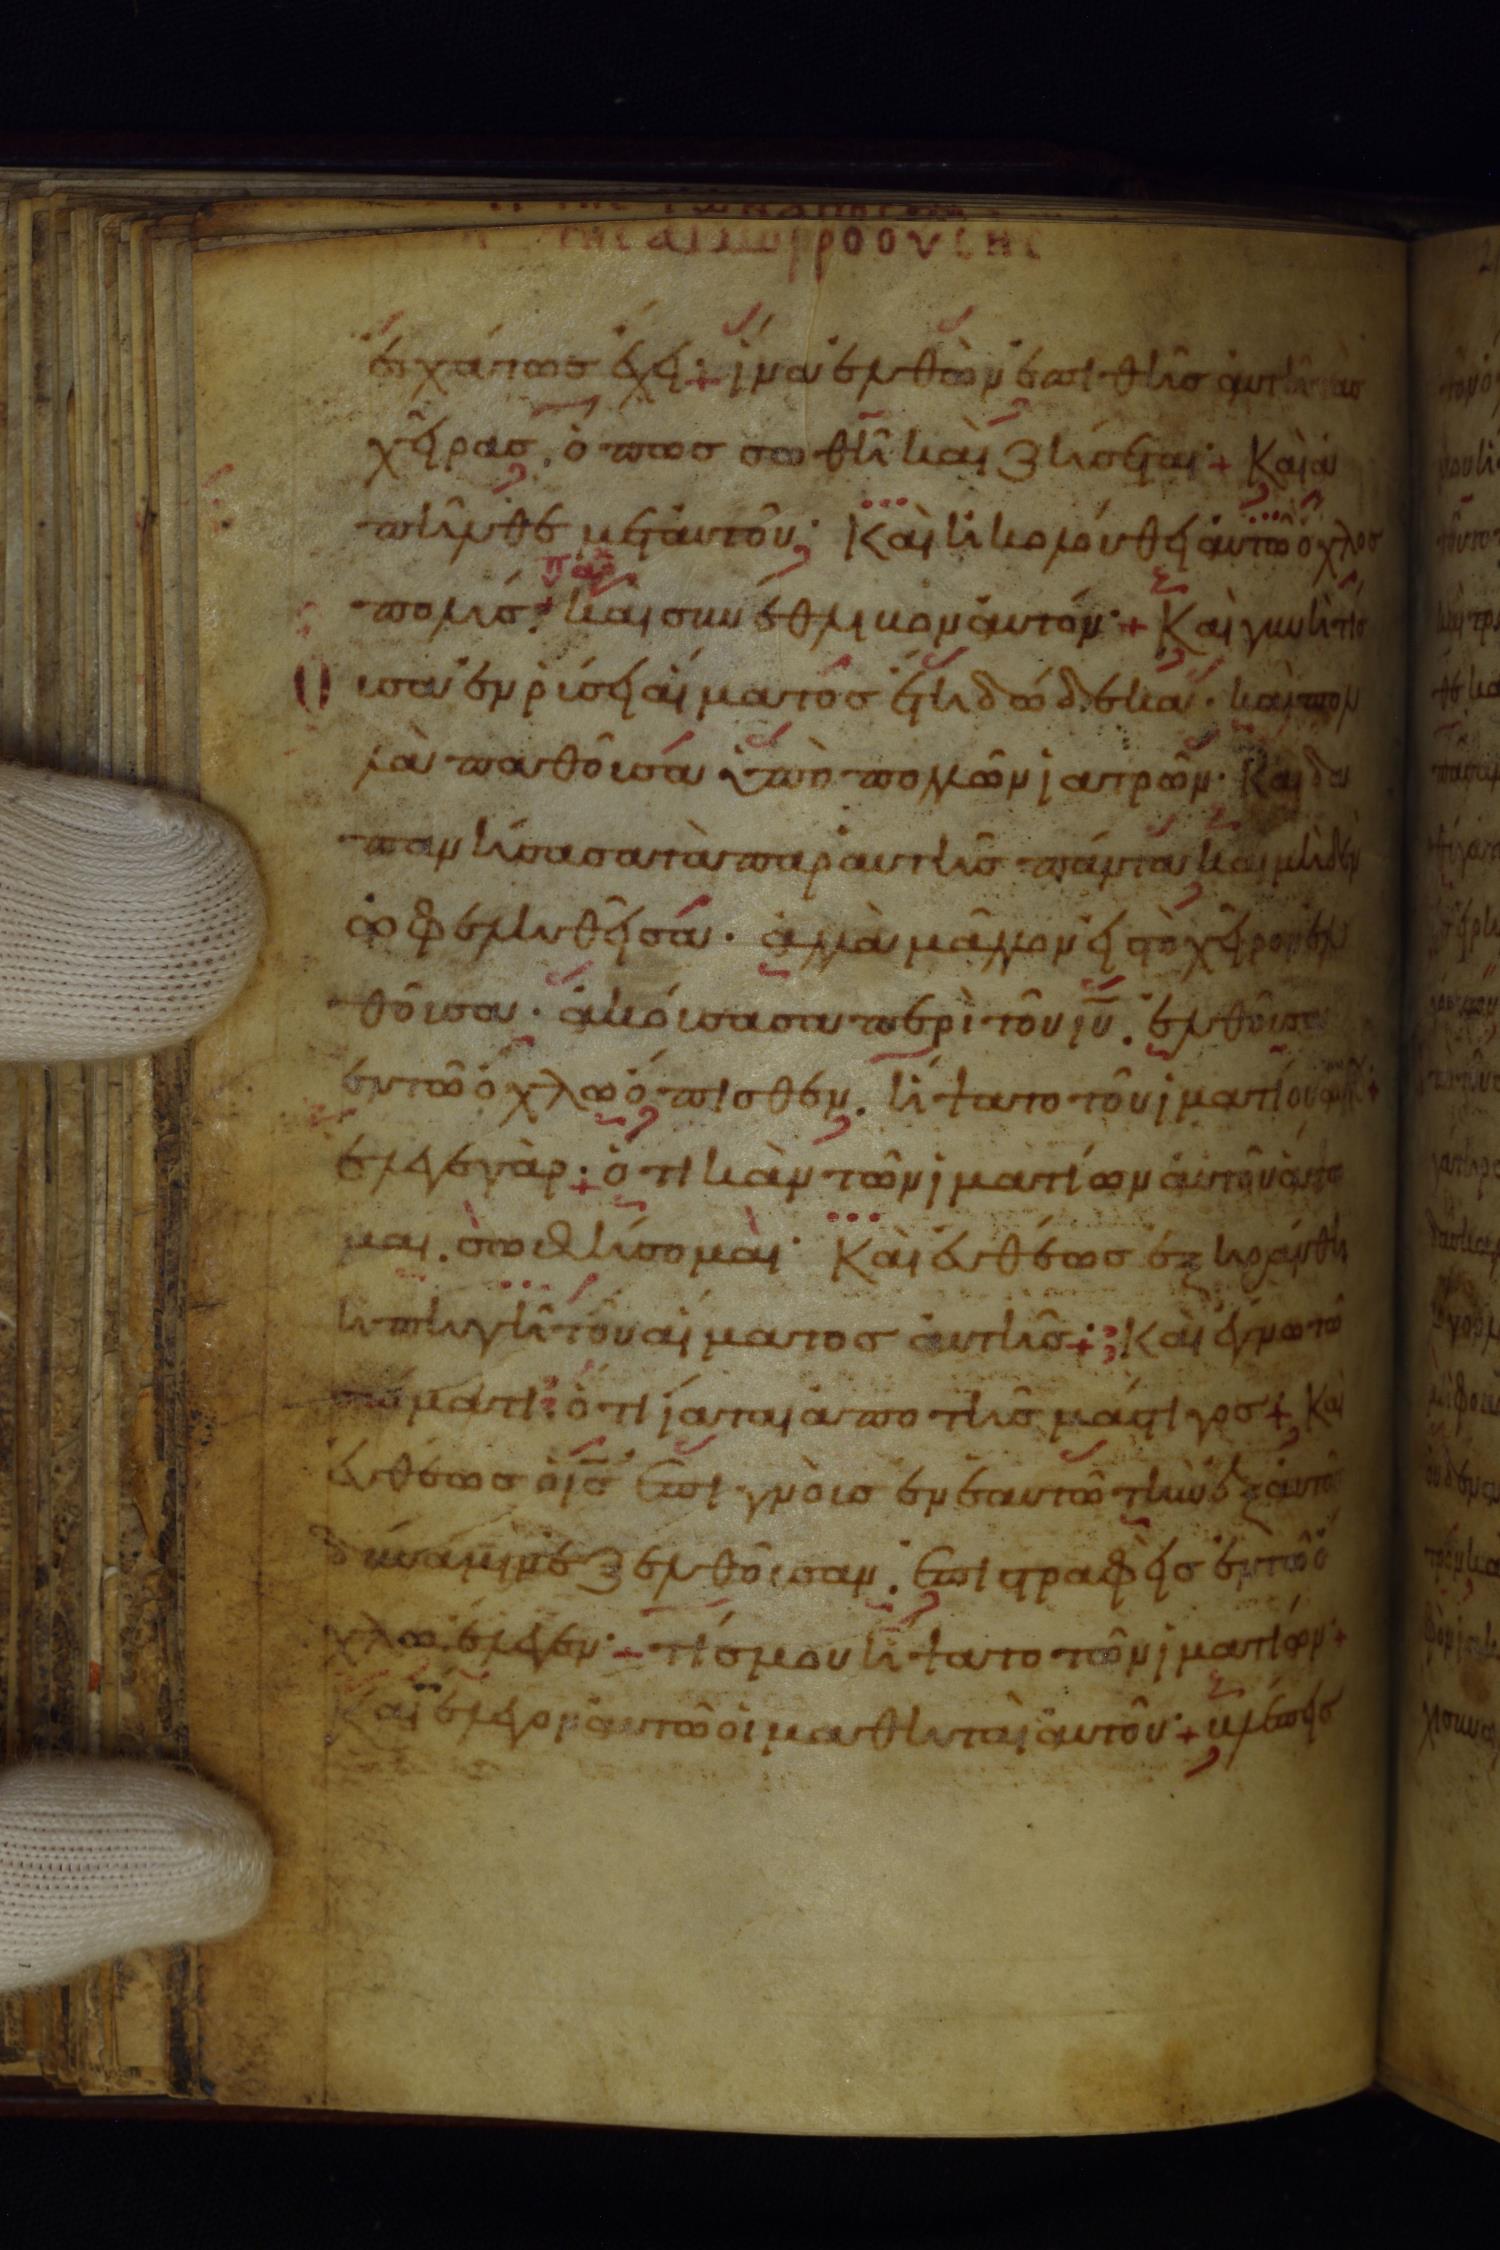 της αιμορροουσης
ἐσχάτως ἔχει· ἵνα ἐλθὼν ἐπιθῆς αὐτῆ τὰς
χεῖρας, ὅπως σωθῆ καὶ ζήσεται· Καὶ ἀ
πῆλθε μετ' αὐτοῦ· Καὶ ἠκολούθει αὐτῶ ὄχλος
πολύς· καὶ συνέθλιβον αὐτόν· Καὶ γυνὴ τίς
οὖσα ἐν ῥύσει αἵματος ἔτη δώδεκα· καὶ πολ
λὰ παθοῦσα ὑπὸ πολλῶν ἰατρῶν· Καὶ δα
πανήσασα τὰ παρ' αὐτῆς πάντα καὶ μηδὲν
ὠφεληθεῖσα· ἀλλὰ μᾶλλον εἰς τὸ χεῖρον ἐλ
θοῦσα· ἀκούσασα περὶ τοῦ ιυ. ἐλθοῦσα
ἐν τῶ ὄχλω ὄπισθεν. ἥψατο τοῦ ἱματίου αὐτοῦ
ἔλεγε γὰρ· ὅτι κἂν τῶν ἱματίων αὐτοῦ ἅψω
μαι. σωθήσομαι· Καὶ εὐθέως ἐξηράνθη
ἡ πηγὴ τοῦ αἵματος αὐτῆς· Καὶ ἔγνω τῶ
σώματι· ὅτι ἴαται ἀπὸ τῆς μάστιγος· Καὶ
εὐθέως ὁ ις ἐπιγνοὺς ἐν ἑαυτῶ τὴν ἐξ αὐτοῦ
δύναμιν ἐξελθοῦσαν. ἐπιστραφεὶς ἐν τῶ ὄ
χλω. ἔλεγεν· τίς μου ἥψατο τῶν ἱματίων·
Καὶ ἔλεγον αὐτῶ οἱ μαθηταὶ αὐτοῦ· βλέπεις